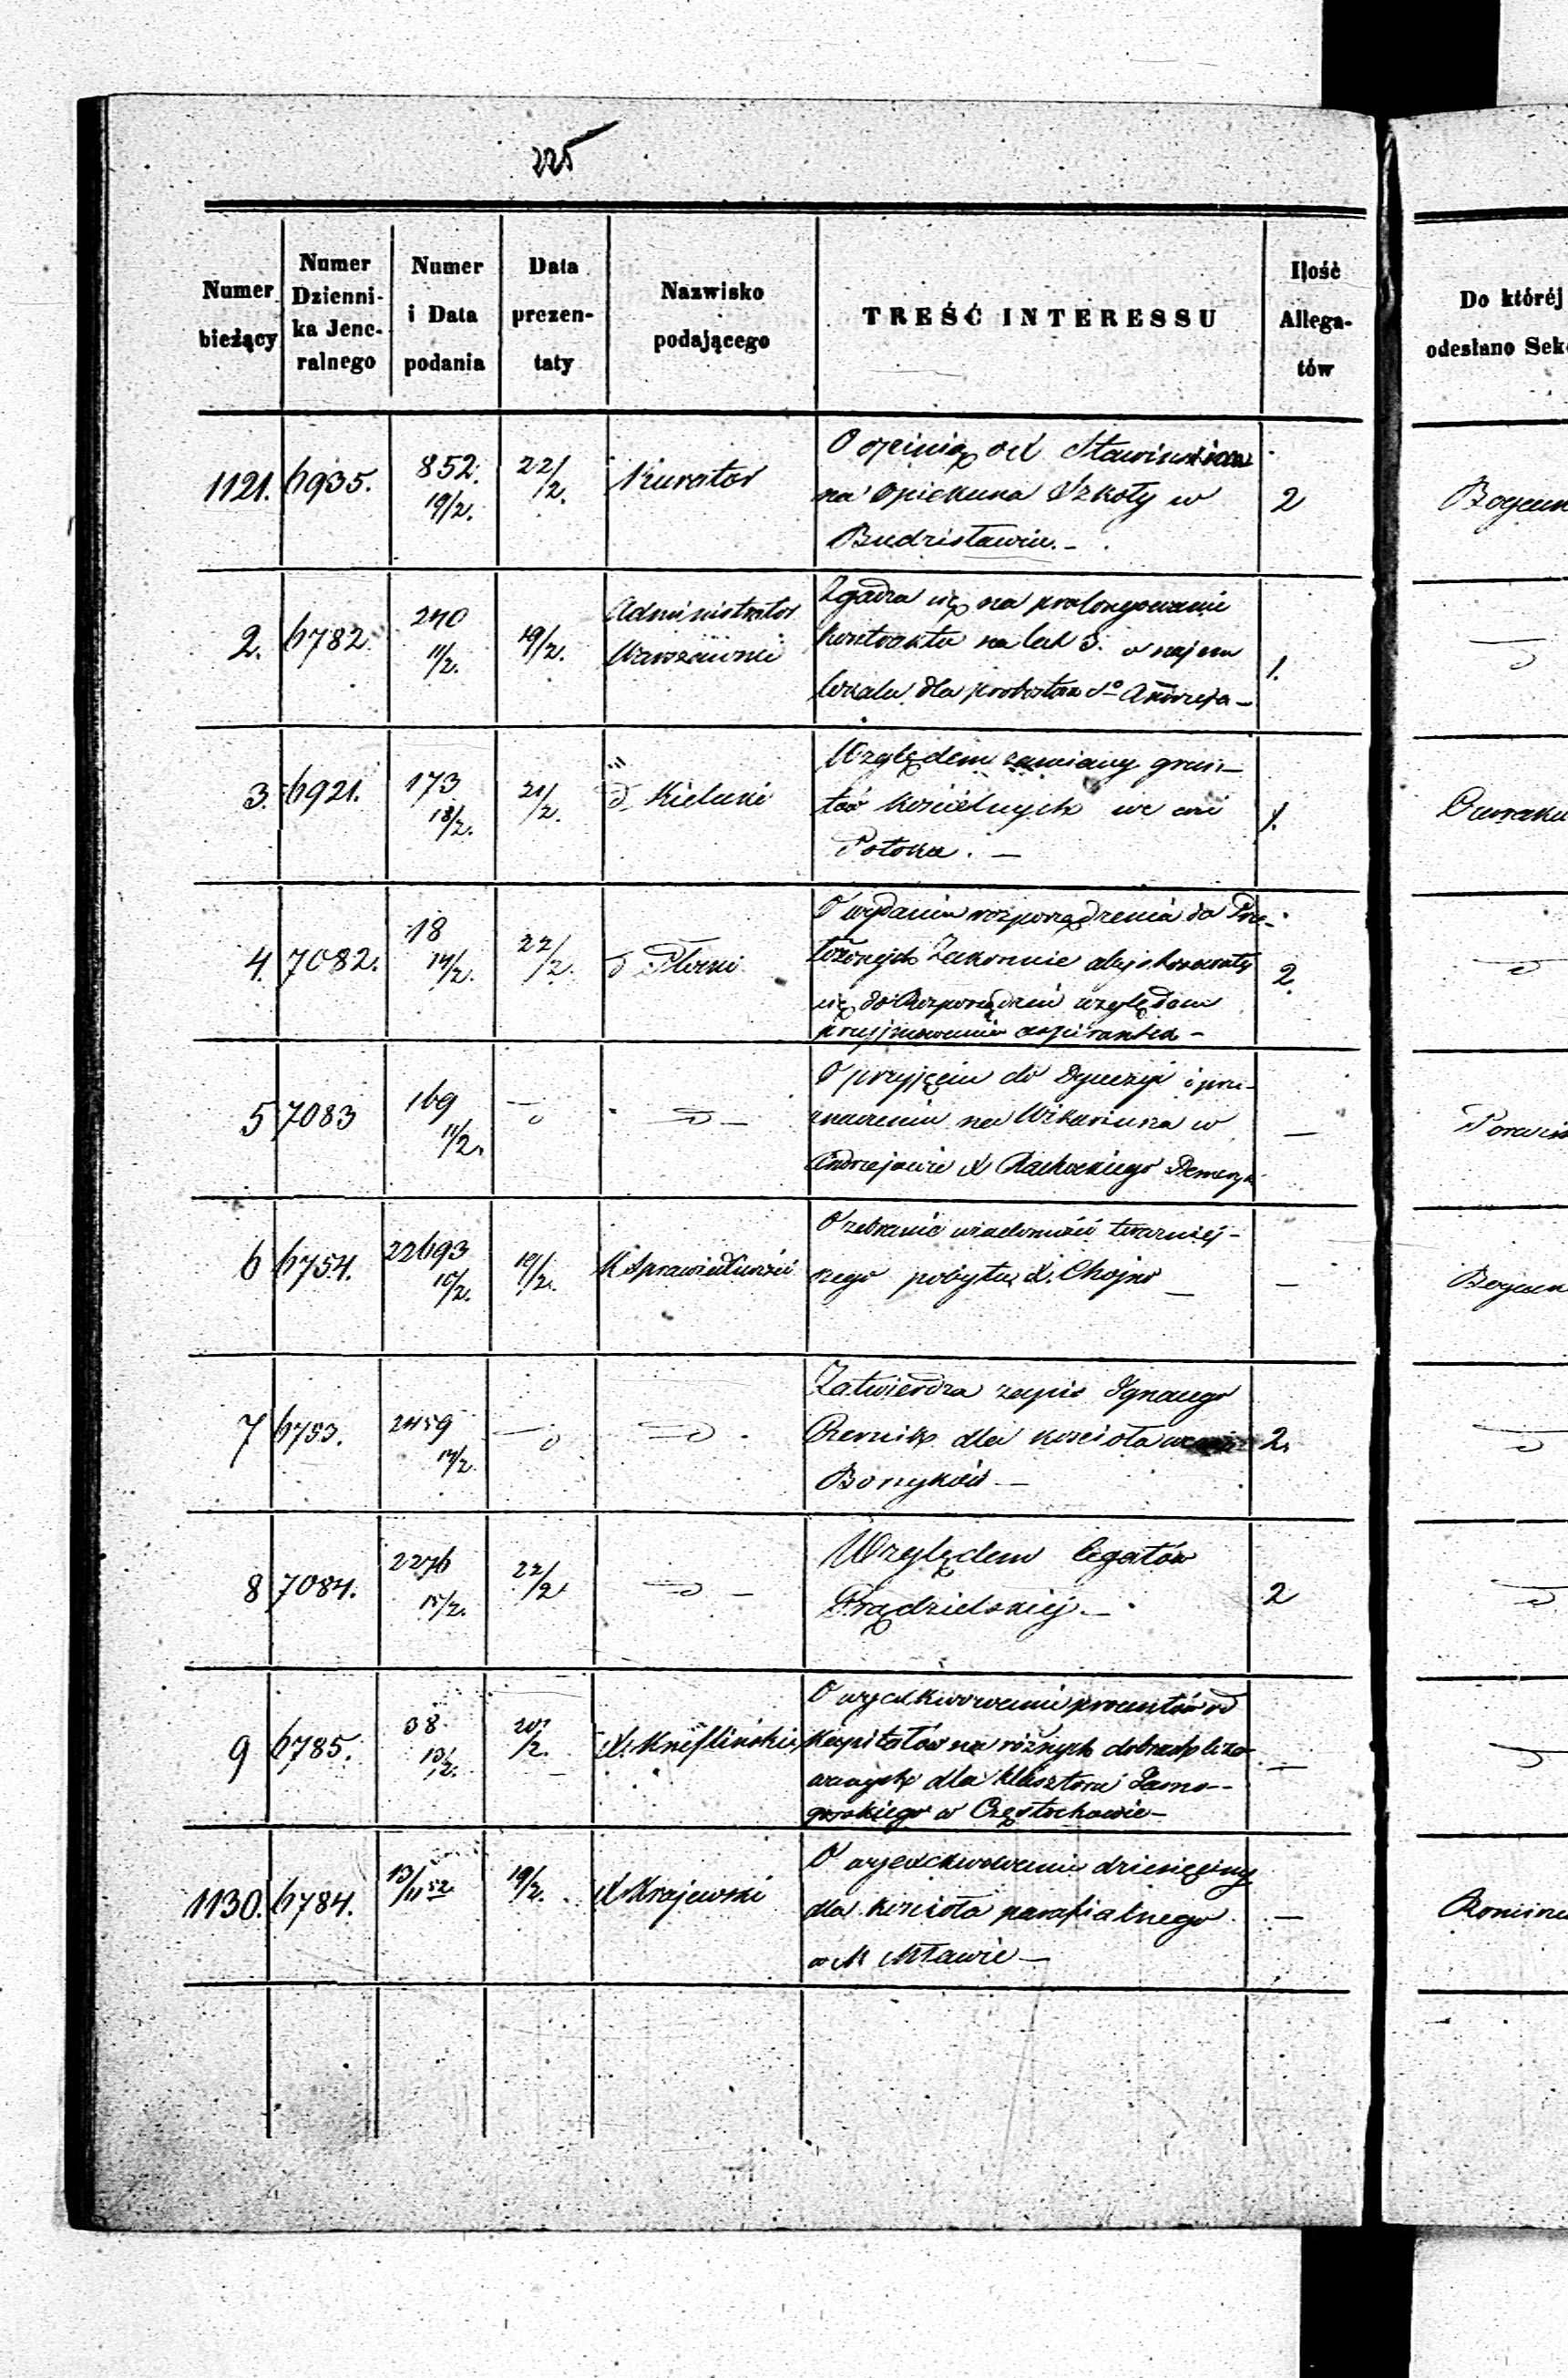 225
Numer bieżący
Numer Dzienni-ka Jene-ralnego
Numer i Data podania
Data prezen-taty
Nazwisko podającego
TREŚĆ INTERESSU
Ilość Allega-tów
Do któréj
odesłano Sek
1121. 6935. 852. 19/2. 22/2. Kurator
O opinię od
na opiekuna Szkoły w 2
Budzisławiu.-
2. 6782. 240 11/2. 19/2. Administrator Warszawski
Zgadza się na prolongowanie
kontraktu na lat 3. o najem 1.
lokalu dla probostwa Sº Andrzeja-
3. 6921. 173 18/2. 21/2. d. Kielecki
Względem zamiany grun-
tów kościelnych we wsi 1.
Potoka. -
4. 7082. 18 14/2. 22/2. d. Płocki
O wydanie rozporządzenia do Prze-
łożonych Zakonnie aby stosowały 2.
się do Rozporządzeń względem
przyjmowania aspirantek -
5 7083 169 11/2.
O przyjęciu do Dyecezyi i prze-
znaczeniu na Wikariusza w -
Andrzejewie X
6 6754. 22693 10/2. 19/2. K Sprawiedliwości
O zebranie wiadomości teraźniej-
szego pobytu X. Chojno -
7 6753. 2459 14/2.
Zatwierdza zapis Ignacego
dla kościoła we wsi 2.
Bonyków -
8 7084. 2276 15/2. 22/2
Względem legatów
Prądzielskiej.- 2
9 6785. 38 13/2. 20/2. X.
O wyexekwowanie procentów od
kapitałów na różnych dobrach loko-
wanych dla klasztoru Jasno-
górskiego w Częstochowie-
1130. 6784. 13/11 52 19/2. X Krajewski
O wyexekwowanie dziesięciny
dla kościoła parafialnego -
w M Mławie -